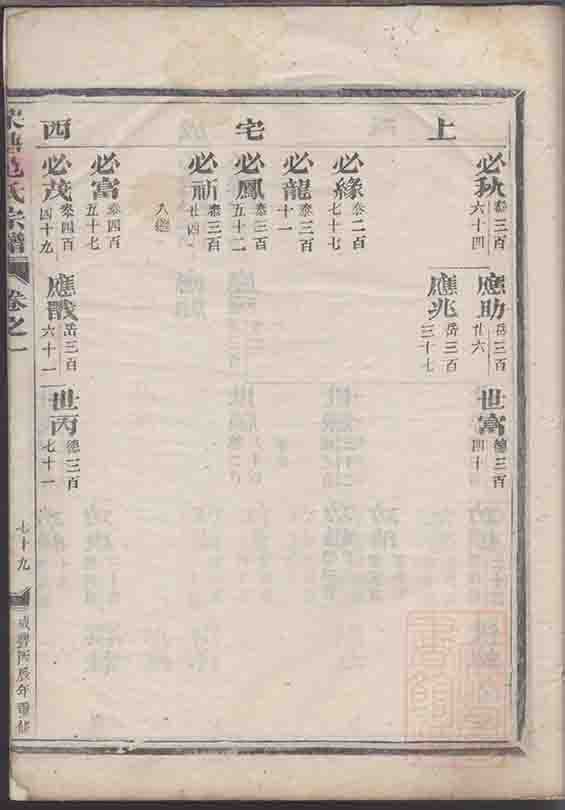 上宅西
必秋 叁三百六十四
應助 岳三百廿六
世富 德三百四十
應兆 岳三百三十七
必緣 叁二百七十七
必龍 叁三百十一
必鳳 叁三百五十二
必祈 叁三百廿四
必富 叁四百五十七
必茂 叁四百四十九
應戩 岳三百六十一
世丙 德三百七十一
氏宗譜
卷之一
七十九
咸豐丙辰年重修